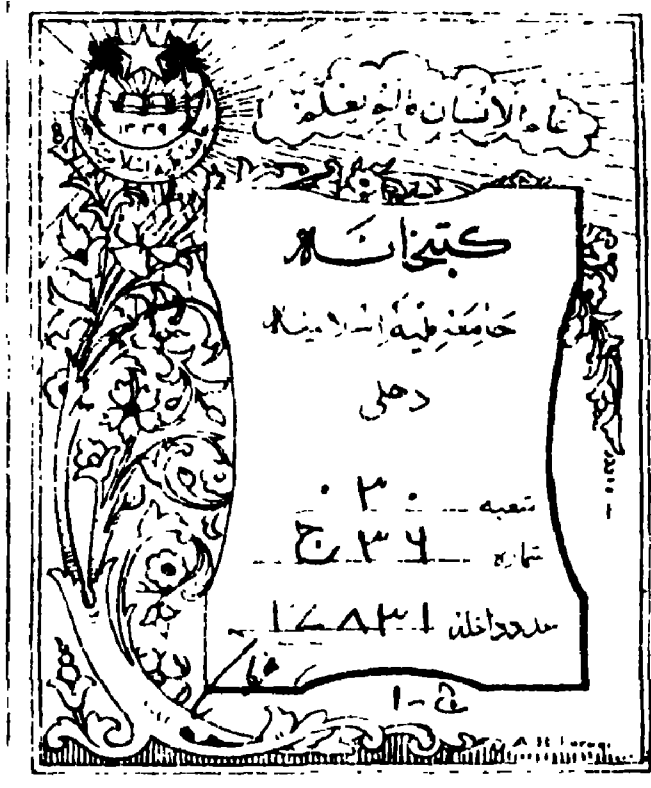 ۱۳۳۹
علم الانسان مالم يعلم
کتبخانہ
جامعہ ملیہ اسلامیہ
دہلی
شعبہ ۰۳۰
شمارہ ۳۶ ج
عدد داخلہ ۱۷۸۳۱
ج - ۱